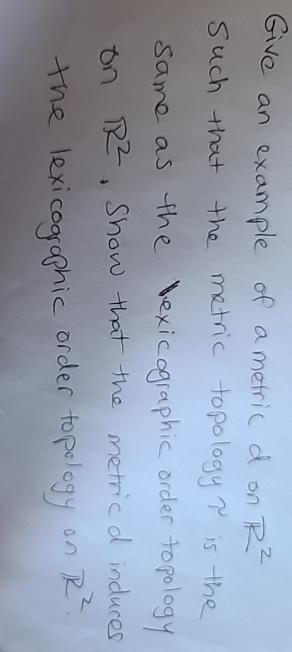 Give an example of a metric d on ℝ²
Such that the metric topology τ is the
same as the lexicographic order topology
on ℝ². Show that the metric d induces
the lexicographic order topology on ℝ².